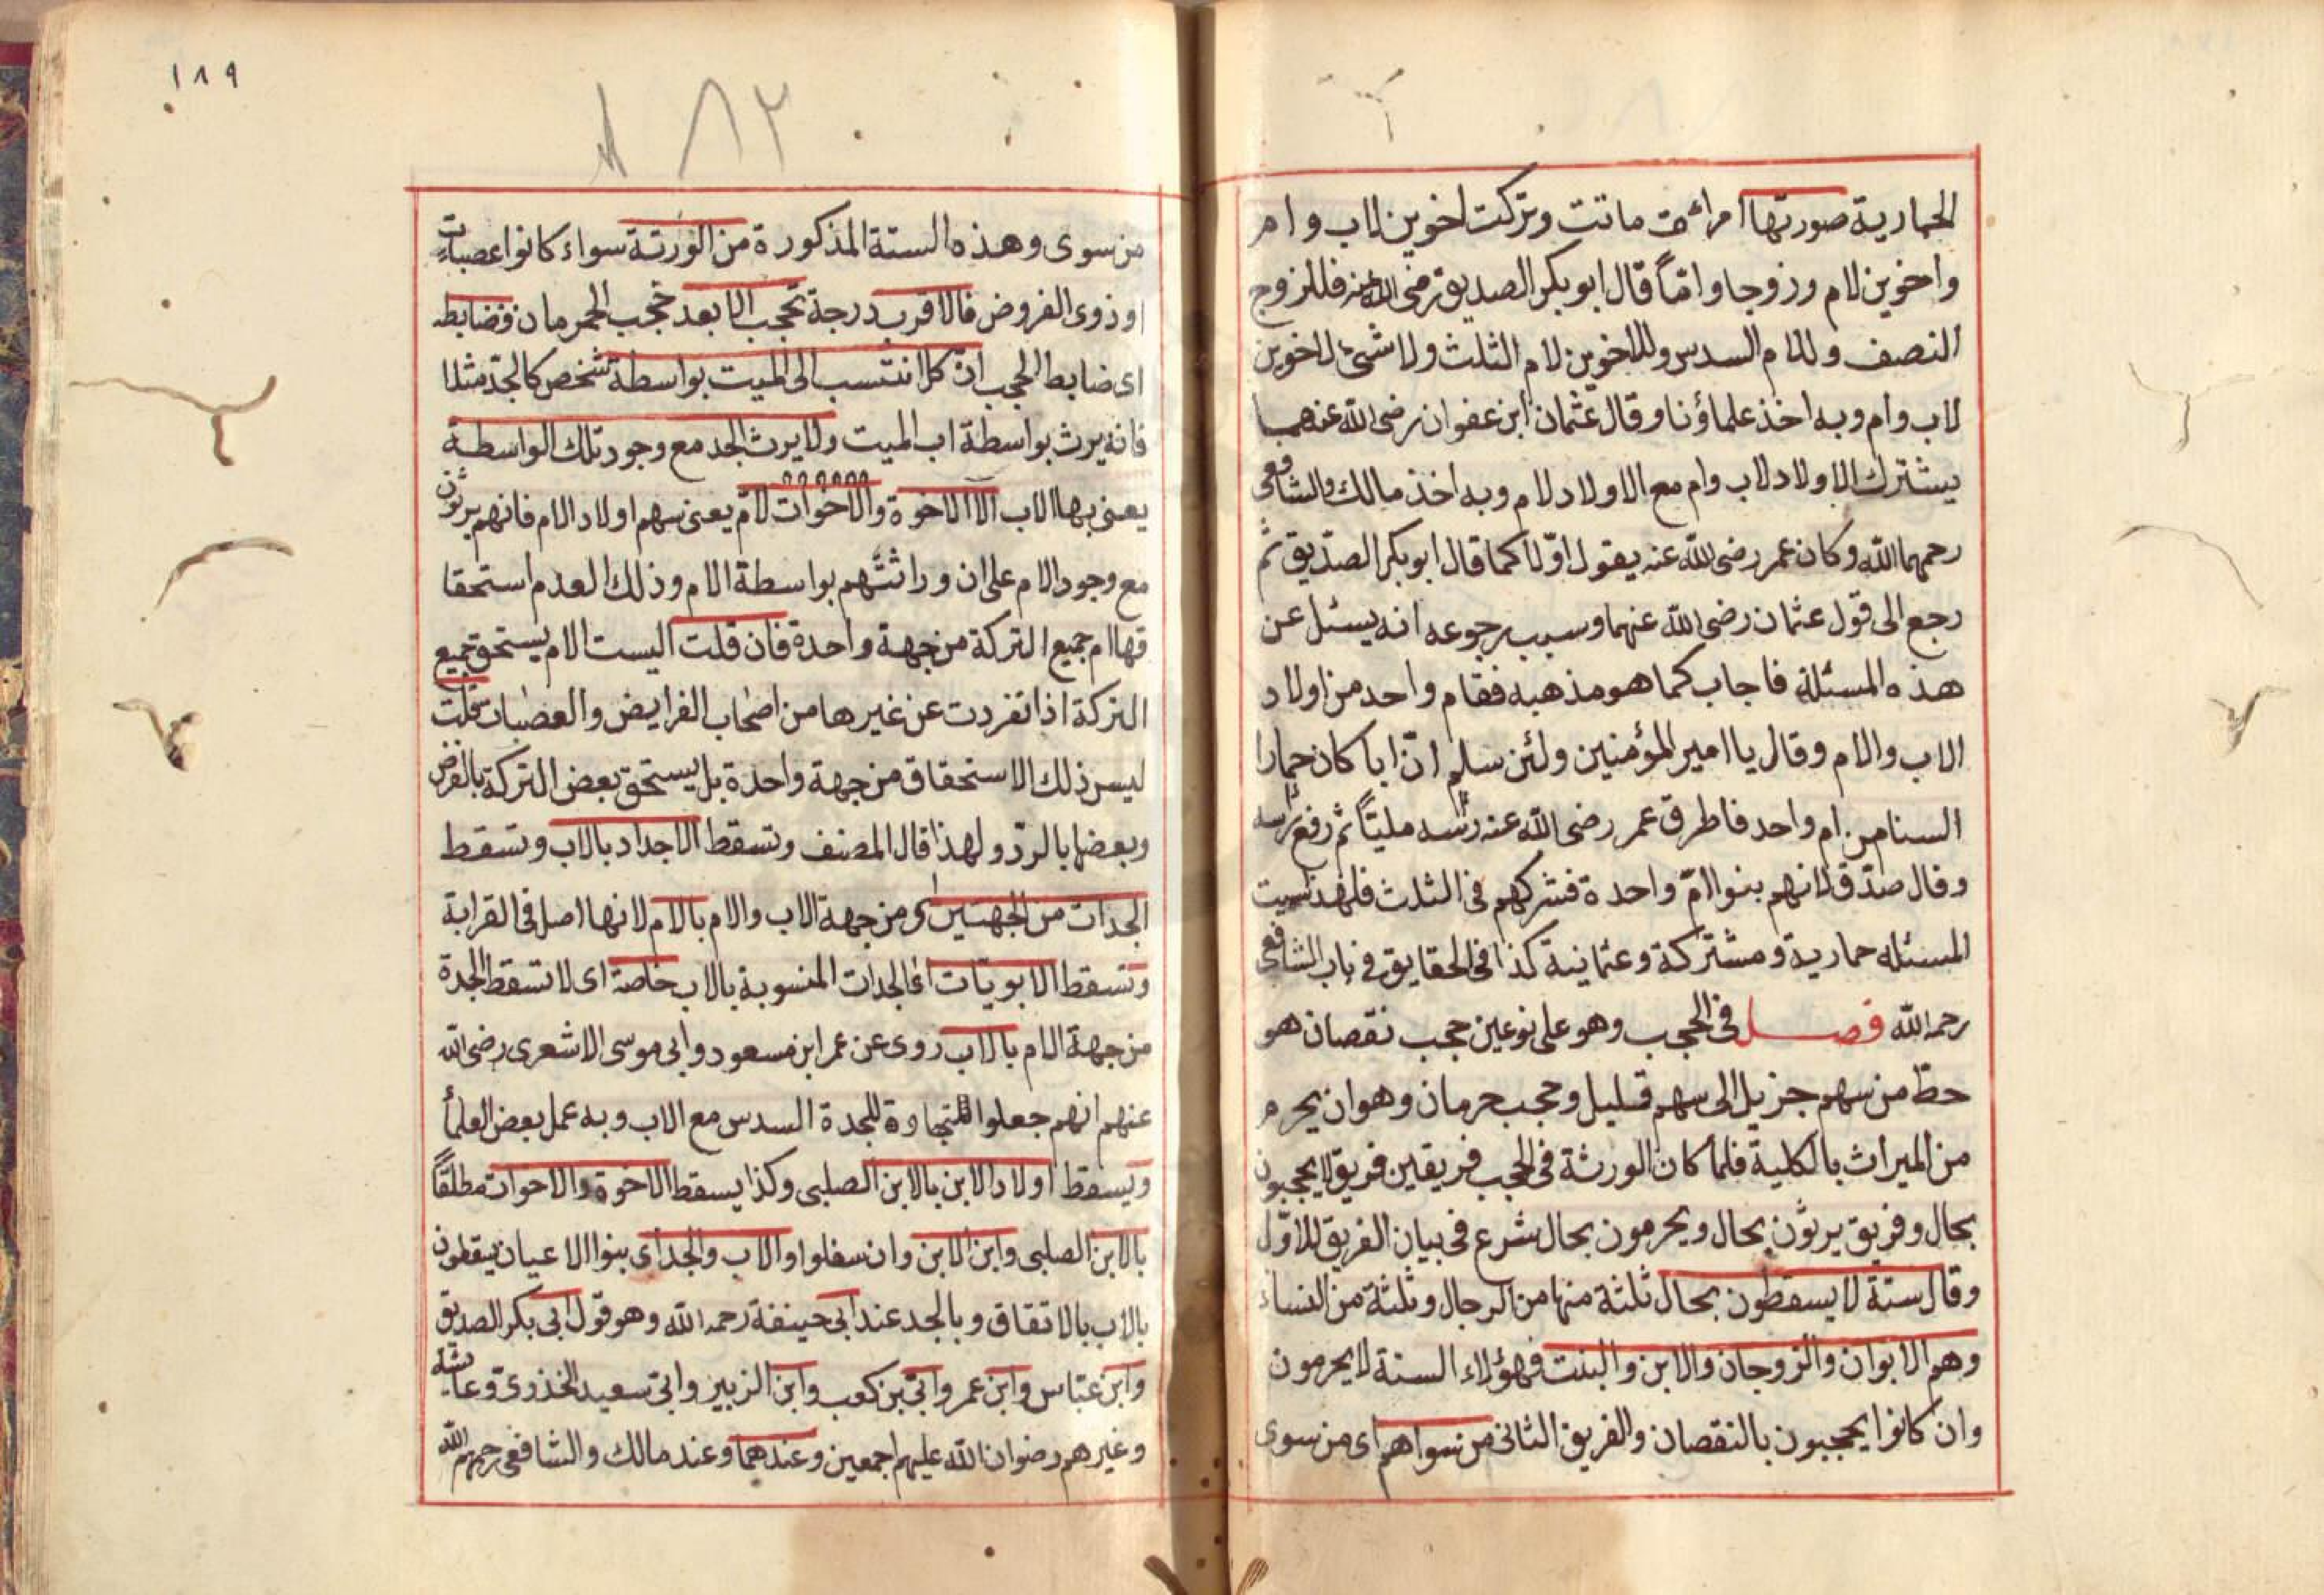 الحمارية صورتها امرأة ماتت وتركت اخوين لاب وام
واخوين لام وزوجا واما قال ابو بكر الصديق رضى الله عنه فللزوج
النصف وللام السدس وللاخوين لام الثلث ولا شئ لاخوين
لاب وام وبه اخذ علماؤنا وقال عثمان ابن عفوان رضى الله عنهما
يشترك الاولاد لاب وام مع الاولاد لام وبه اخذ مالك والشافعى
رحمهما الله وكان عمر رضى الله عنه يقول اوّلا كما قال ابو بكر الصدّيق ثم
رجع الى قول عثمان رضى الله عنهما وسبب رجوعه انه يسئل عن
هذه المسئلة فاجاب كما هو مذهبه فقام واحد من اولاد
الاب والام وقال يا امير المؤمنين ولئن سلم انّ ابا كان حمارا
السنا من ام واحد فاطرق عمر رضى الله عنه رأسه مليّاً ثم رفع رأسه
وقال صدّق لانهم بنوا امّ واحدة فشركهم فى الثلث فلهذا سميت
المسئله حمارية ومشتركة وعثمانية كذا فى الحقايق فى باب الشافعى
رحمه الله فصل فى الحجب وهو على نوعين حجب نقصان هو
حطّ من سهم جزيل الى سهم قليل وحجب حرمان وهو ان يحرم
من الميراث بالكلية فلما كان الورثة فى الحجب فريقين فريق لا يحجبون
بحال وفريق يرثون بحال ويحرمون بحال شرع فى بيان الفريق الاوّل
وقال ستة لا يسقطون بحال ثلثة منها من الرجال وثلثة من النساء
وهم الابوان والزوجان والابن والبنت فهؤلاء الستة لا يحرمون
وان كانوا يحجبون بالنقصان والفريق الثانى من سواهم اى من سوى
١٨٩
١٨٢
من سوى وهذه الستة المذكورة من الورثة سواء كانوا عصبات
او ذوى الفروض فالاقرب درجة يحجب الابعد حجب الحرمان وضابطه
اى ضابط الحجب انّ كل انتسب الى الميت بواسطة شخص كالجدّ مثلا
فانه يرث بواسطة اب الميت ولا يرث الجد مع وجود تلك الواسطة
يعنى بها الاب الا الاخوة والاخوات لامّ يعنى سهم اولاد الام فانهم يرثون
مع وجود الام على ان وراثتهم بواسطة الام وذلك لعدم استحقا
قها ام جميع التركة من جهة واحدة فان قلت اليست الام يستحق جميع
التركة اذا تفردت عن غيرها من اصحاب الفرايض والعصبات قلت
ليس ذلك الاستحقاق من جهة واحدة بل يستحق بعض التركة بالفرض
وبعضها بالردّ ولهذا قال المصنف وتسقط الاجداد بالاب وتسقط
الجدات من الجهتين اى من جهة الاب والام بالام لانها اصل فى القرابة
وتسقط الابويّات اى الجدات المنسوبة بالاب خاصة اى لا تسقط الجدة
من جهة الام بالاب روى عن عمر ابن مسعود وابى موسى الاشعرى رضى الله
عنهم انهم جعلوا للجدة السدس مع الاب وبه عمل بعض العلمأ
ويسقط اولاد الابن بالابن الصلبى وكذا يسقط الاخوة والاخوات مطلقاً
بالابن الصلبى وابن الابن وان سفلوا والاب والجد اى بنوا الاعيان يسقطون
بالاب بالاتفاق وبالجد عند ابى حينفة رحمه الله وهو قول ابى بكر الصديق
وابن عبّاس وابن عمر وابىّ بن كعب وابن الزبير وابى سعيد الخذرى وعايشه
وغيرهم رضوان الله عليهم اجمعين وعندهما وعند مالك والشافعى رحمهم الله